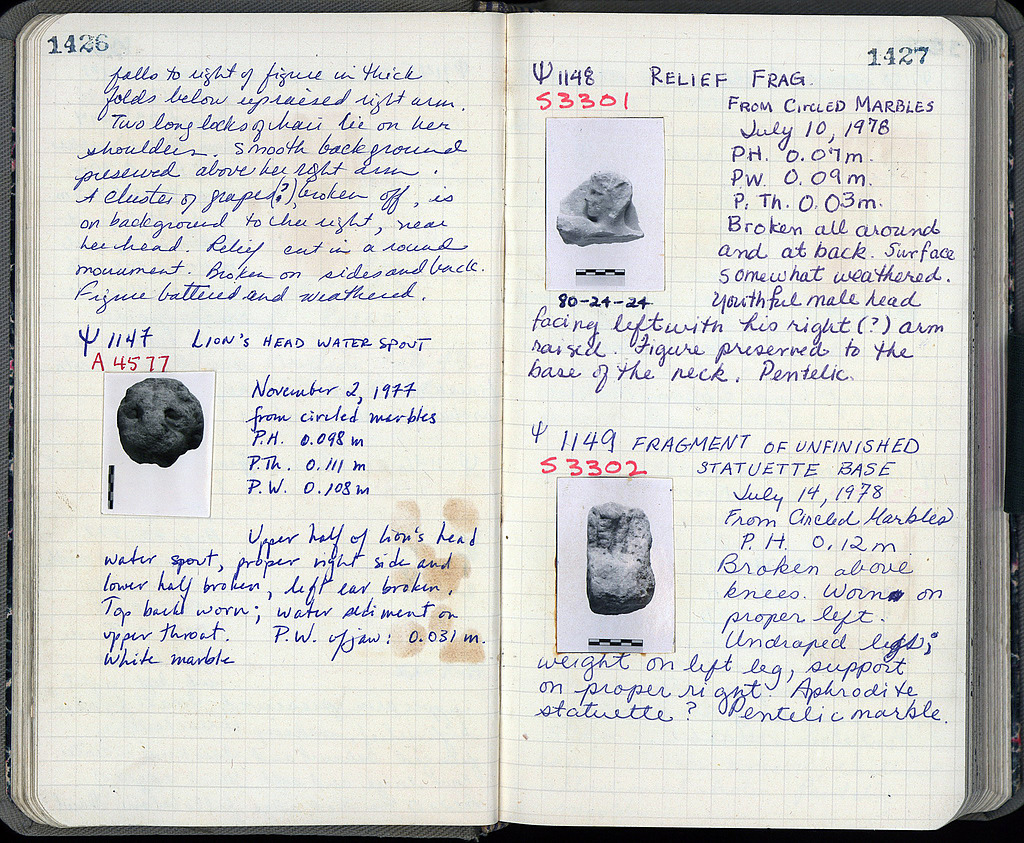 1426
falls to right of figure in thick
folds below upraised right arm.
Two long locks of hair lie on her
shoulders. Smooth background
preserved above her right arm.
A cluster of grapes(?), broken off, is
on background to her right, near
her head. Relief cut in a round
monument. Broken on sides and back.
Figure battered and weathered.
Ψ 1147 LION'S HEAD WATER SPOUT
A 4577
November 2, 1977
from circled marbles
P.H. 0.098 m
P.Th. 0.111 m
P.W. 0.108 m
Upper half of lion's head
water spout, proper right side and
lower half broken, left ear broken.
Top back worn; water sediment on
upper throat. P.W. of jaw: 0.031 m.
White marble
1427
Ψ 1148 RELIEF FRAG.
S3301
FROM CIRCLED MARBLES
July 10, 1978
PH. 0.07m.
PW. 0.09m.
P. Th. 0.03m.
Broken all around
and at back. Surface
somewhat weathered.
80-24-24
Youthful male head
facing left with his right (?) arm
raised. Figure preserved to the
base of the neck. Pentelic.
Ψ 1149 FRAGMENT OF UNFINISHED
S3302 STATUETTE BASE
July 14, 1978
From Circled Marbles
P. H. 0.12 m
Broken above
knees. Worn on
proper left.
Undraped legs;
weight on left leg, support
on proper right. Aphrodite
statuette? Pentelic marble.